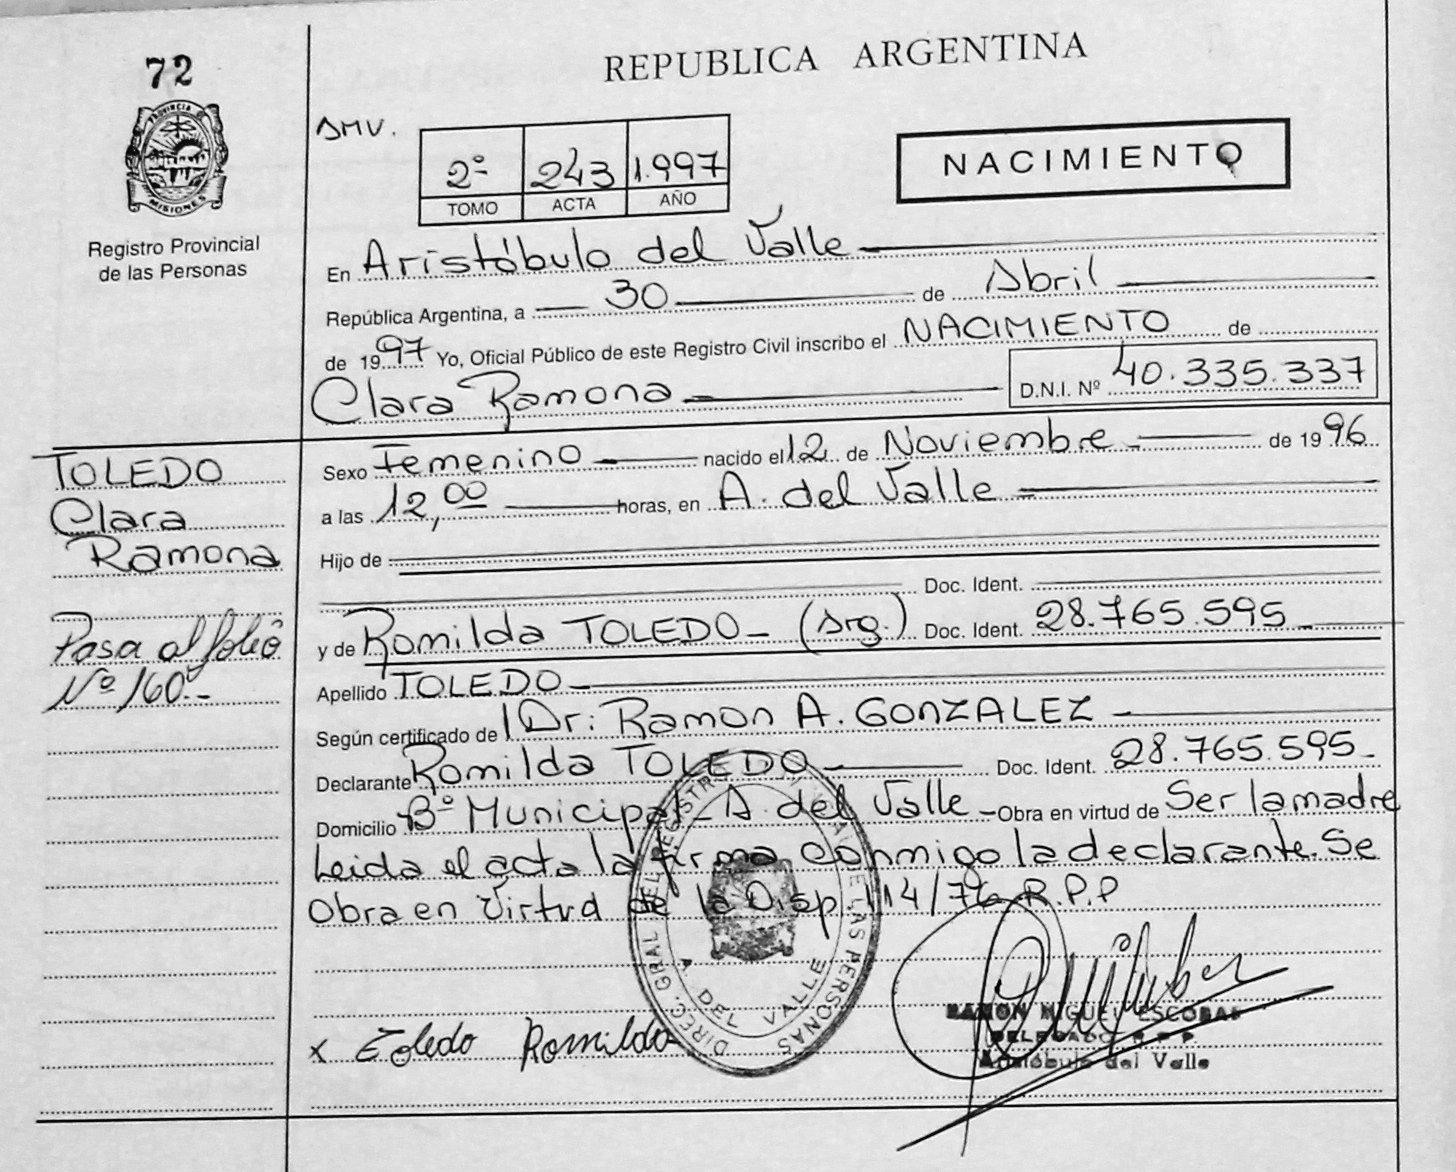 72
REPUBLICA ARGENTINA
PROVINCIA DE
MISIONES
Registro Provincial
de las Personas
SMV.
2º 243 1.997
TOMO ACTA AÑO
NACIMIENTO
En Aristóbulo del Valle
República Argentina, a 30 de Abril
de 1997 Yo, Oficial Público de este Registro Civil inscribo el NACIMIENTO de
Clara Ramona D.N.I. Nº 40.335.337
TOLEDO
Clara
Ramona
Pasa al folio
Nº 160.-
Sexo Femenino nacido el 12 de Noviembre de 1996
a las 12,00 horas, en A. del Valle
Hijo de
Doc. Ident.
y de Romilda TOLEDO - (Arg.) Doc. Ident. 28.765.595
Apellido TOLEDO
Según certificado de Dr: Ramon A. GONZALEZ
Declarante Romilda TOLEDO Doc. Ident. 28.765.595-
Domicilio Bº Municipal - A. del Valle - Obra en virtud de Ser la madre
Leida el acta la firma conmigo la declarante. Se
Obra en Virtud de la Disp. 114/76 R.P.P
DIREC. GRAL DEL REGISTRO DE LAS PERSONAS
A. DEL VALLE
x Toledo Romilda
RAMON MIGUEL ESCOBAR
DELEGADO R P P
Aristóbulo del Valle